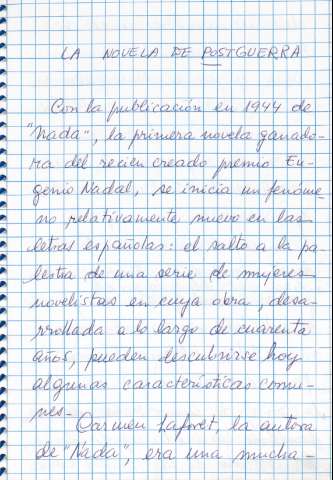 LA NOVELA DE POSTGUERRA
Con la publicación en 1944 de
"Nada", la primera novela ganado-
ra del recien creado premio Eu-
genio Nadal, se inicia un fenóme-
no relativamente nuevo en las
letras españolas: el salto a la pa-
lestra de una serie de mujeres
novelistas en cuya obra, desa-
rrollada a lo largo de cuarenta
años, pueden descubrirse hoy
algunas características comu-
nes.-
Carmen Laforet, la autora
de "Nada", era una mucha-